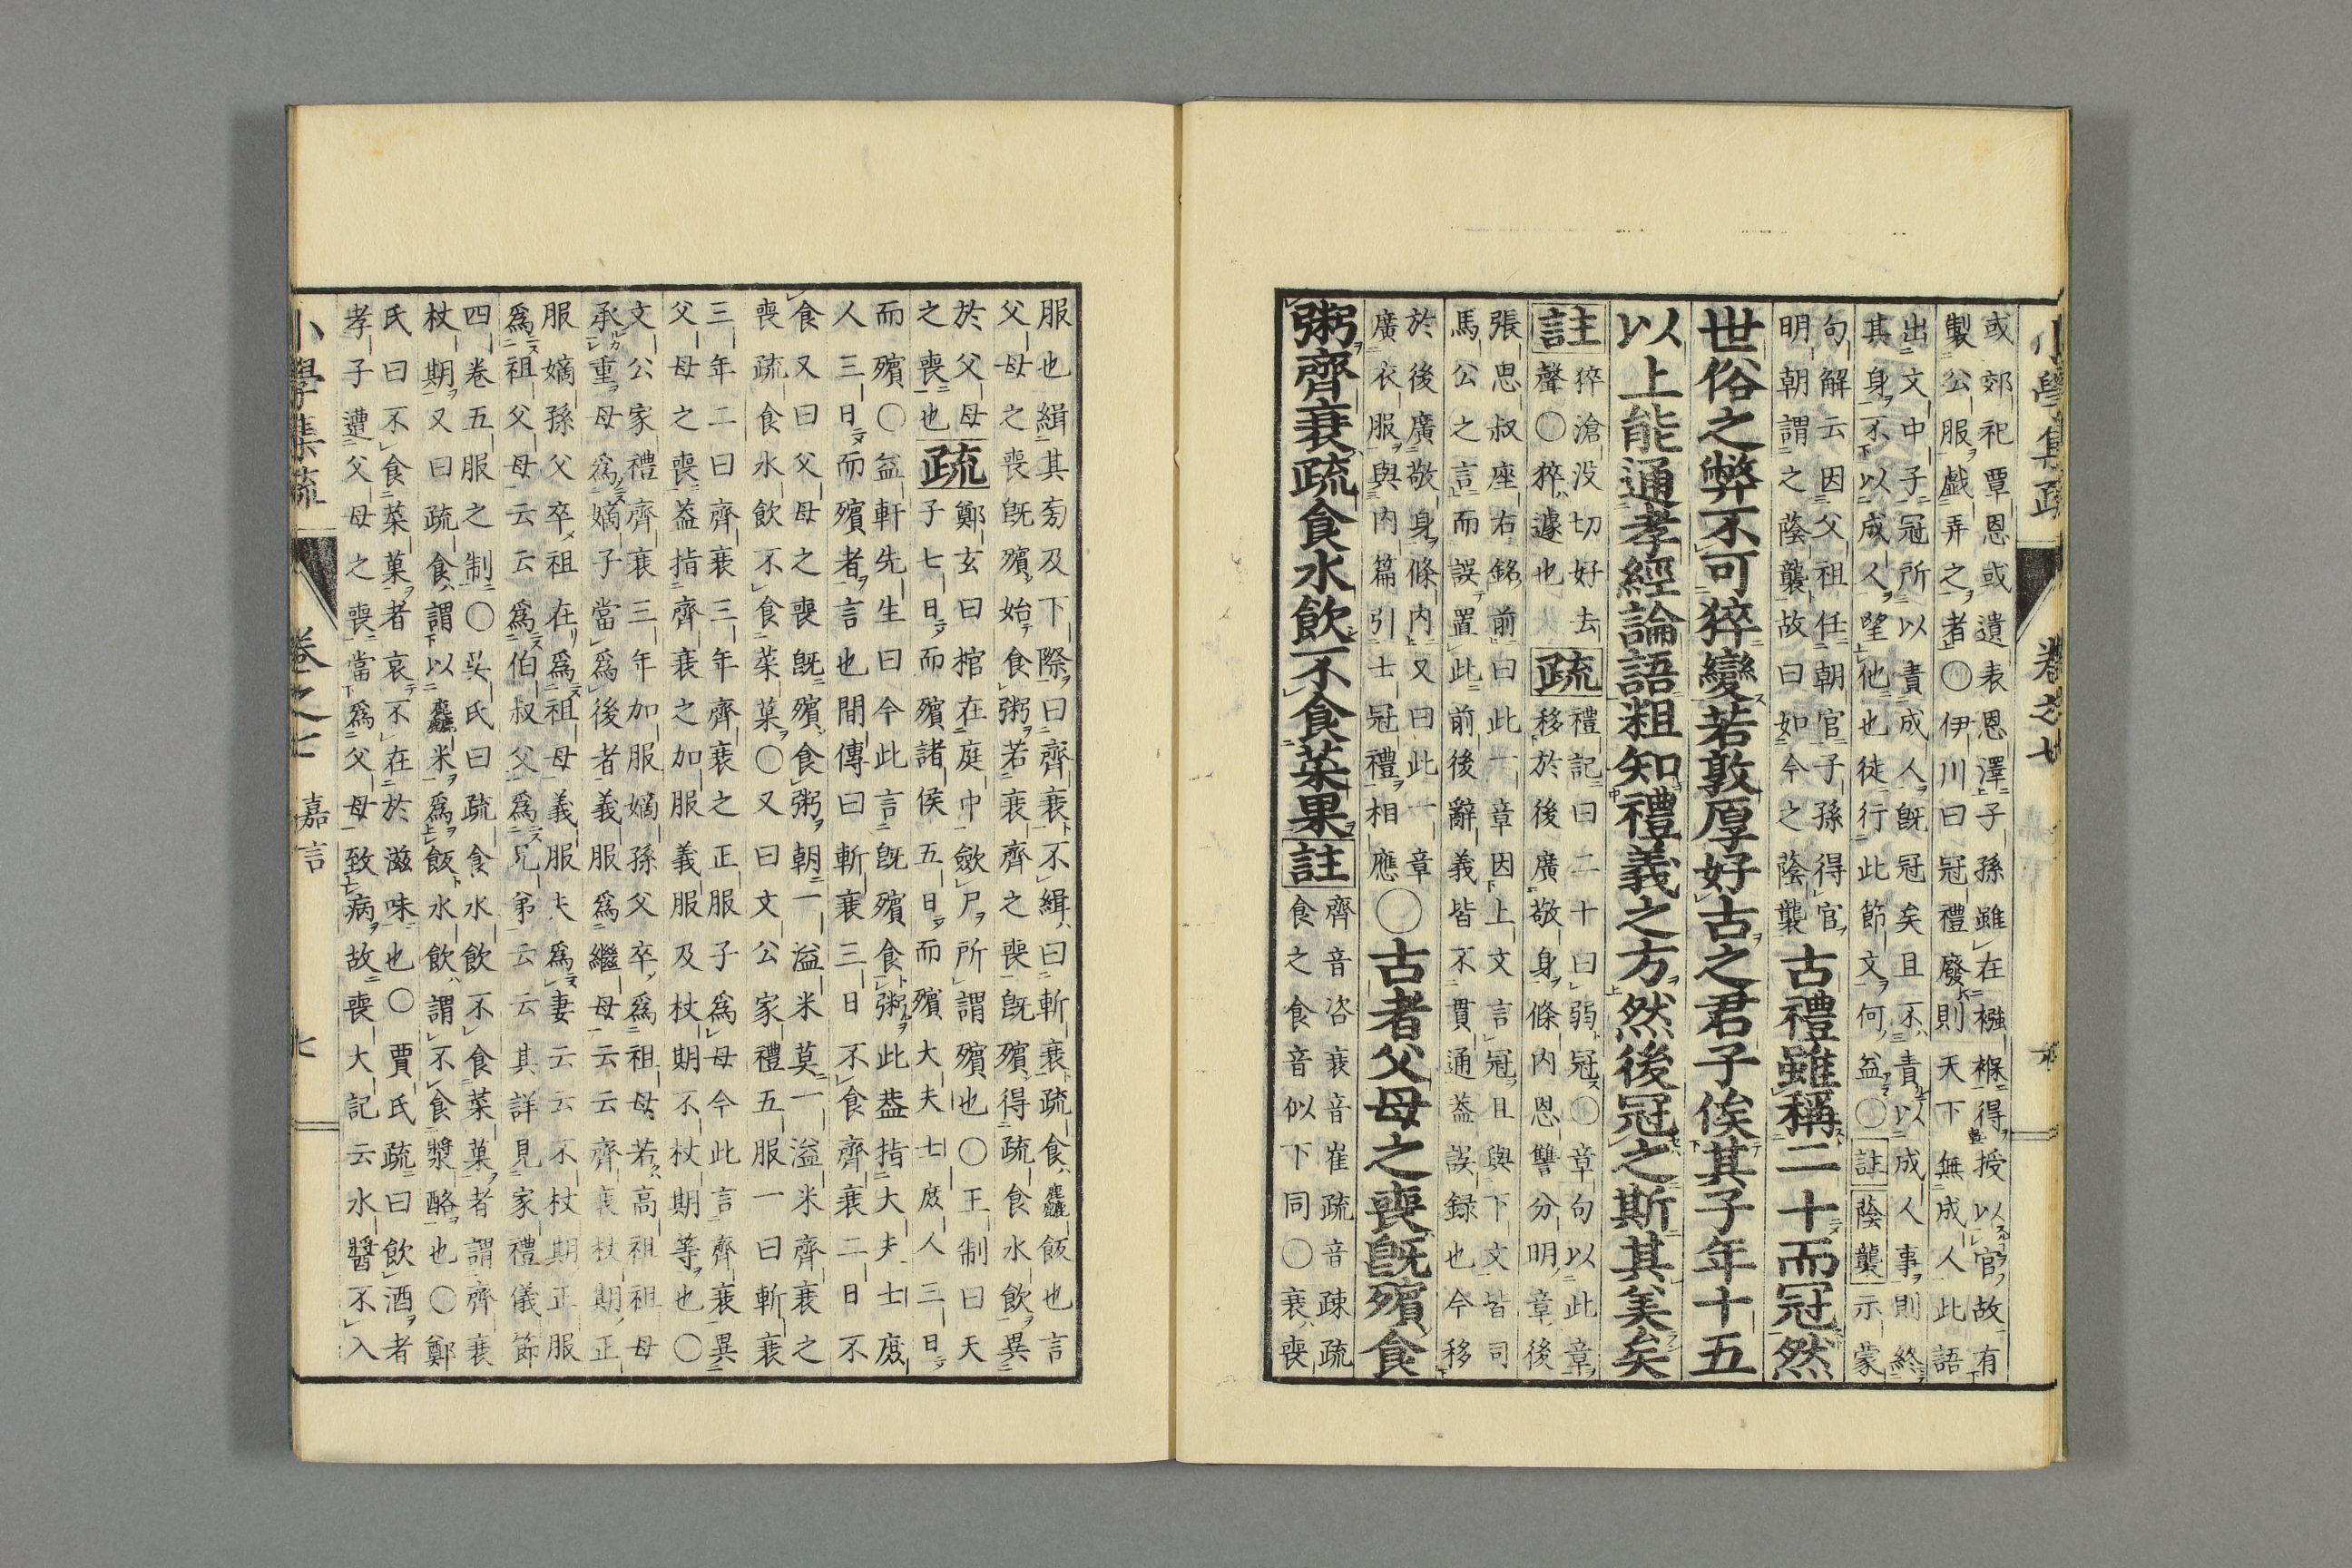 小學集疏 卷之七
或郊祀覃恩或遺表恩澤子孫雖在襁褓得授以官故有
製公服戲弄之者〇伊川曰冠禮廢則天下無成人此語
出文中子冠所以責成人旣冠矣且不責以成人事則終
其身不以成人望他也徒行此節文何益〇註蔭襲示蒙
句解云因父祖任朝官子孫得官
明朝謂之蔭襲故曰如今之蔭襲
古禮雖稱二十而冠然
世俗之弊不可猝變若敦厚好古之君子俟其子年十五
以上能通孝經論語粗知禮義之方然後冠之斯其美矣
註
猝滄没切好去
聲〇猝遽也
疏
禮記曰二十曰弱冠〇章句以此章
移於後廣敬身條内恩讐分明章後
張思叔座右銘前曰此一章因上文言冠且與下文皆司
馬公之言而誤置此前後辭義皆不貫通葢誤録也今移
於後廣敬身條内又曰此一章
廣衣服與内篇引士冠禮相應
〇古者父母之喪旣殯食
粥齊衰疏食水飲不食菜果
註
齊音咨衰音崔疏音疎疏
食之食音似下同〇衰喪
服也緝其旁及下際曰齊衰不緝曰斬衰疏食麤飯也言
父母之喪旣殯始食粥若衰齊之喪旣殯得疏食水飲異
於父母
之喪也
疏
鄭玄曰棺在庭中歛尸所謂殯也〇王制曰天
子七日而殯諸侯五日而殯大夫士庶人三日
而殯〇益軒先生曰今此言旣殯食粥此葢指大夫士庶
人三日而殯者言也間傳曰斬衰三日不食齊衰二日不
食又曰父母之喪旣殯食粥朝一溢米莫一溢米齊衰之
喪疏食水飲不食菜菓〇又曰文公家禮五服一曰斬衰
三年二曰齊衰三年齊衰之正服子爲母今此言齊衰異
父母之喪葢指齊衰之加服義服及杖期不杖期等也〇
文公家禮齊衰三年加服嫡孫父卒爲祖母若高祖祖母
承重母爲嫡子當爲後者義服爲繼母云云齊衰杖期正
服嫡孫父卒祖在爲祖母義服夫爲妻云云不杖期正服
爲祖父母云云爲伯叔父爲兄弟云云其詳見家禮儀節
四卷五服之制〇吳氏曰疏食水飲不食菜菓者謂齊衰
杖期又曰疏食謂以麤米爲飯水飲謂不食漿酪也〇鄭
氏曰不食菜菓者哀不在於滋味也〇賈氏疏曰飲酒者
孝子遭父母之喪當爲父母致病故喪大記云水醬不入
小學集疏 卷之七 嘉言 七